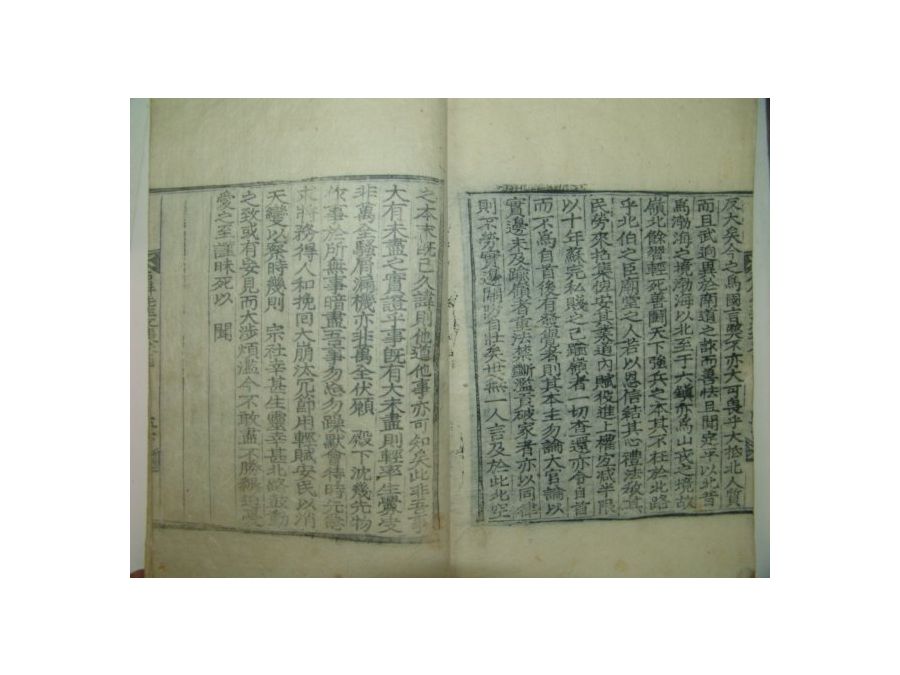 反大矣今之爲國言獎不亦大可畏乎大抵北人質
而且武逈異於南道之詐而善怯且聞定平以北昔
爲渤海之境渤海以北至于六鎭亦爲山戎之境故
嶺北餘習輕死善鬪天下強兵之本其不在於北路
乎北伯之臣廟堂之人若以恩信結其心禮法敎其
民勞來招集按安其業道內賦役進上權宜减半限
以十年蘇完私賤公己願者一切查還亦會自首
而不爲自首後有發覺者則其本主勿論大官論以
實邊未及願者重法禁斷濫貢破家者亦以同律
則不勞實邊關防自壯矣世無一人言及於此北空
之本末旣已久諱則他道他事亦可知矣此非吾事
大有未盡之實證乎事旣有大未盡則輕率生釁受
非萬全騷屑漏機亦非萬全伏願 殿下沈幾先物
作事於所無事暗盡吾事勿忘勿躁默會待時元急
求時務得人和挽回大崩汰冗節用輕賦安民以消
天變以察時幾則 宗社幸甚生靈幸甚北路鼓動
之致或有妄見而大涉煩濫今不敢盡不勝
愛之至謹昧死以 聞